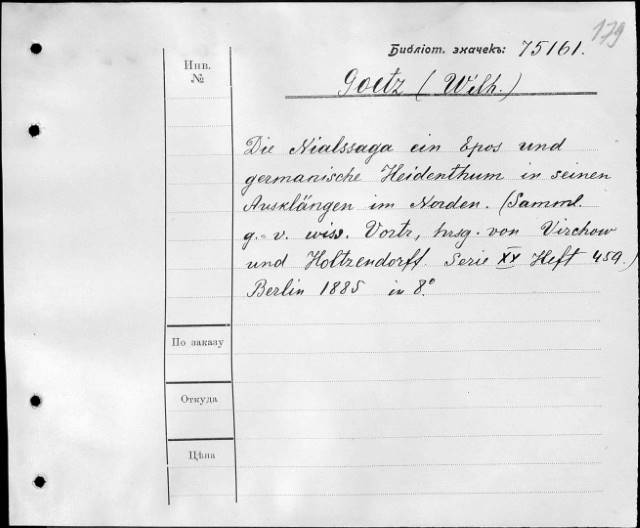 179
Библіот. значекъ: 75161.
Инв.
№
Goetz (Wilh.)
Die Nialssaga ein Epos und
germanische Heidenthum in seinen
Ausklängen im Norden. (Samml.
g. v. wiss. Vortr, hrsg. von Virchow
und Holtzendorff. Serie XX Heft 459.)
Berlin 1885 in 8°
По заказу
Откуда
Цѣна